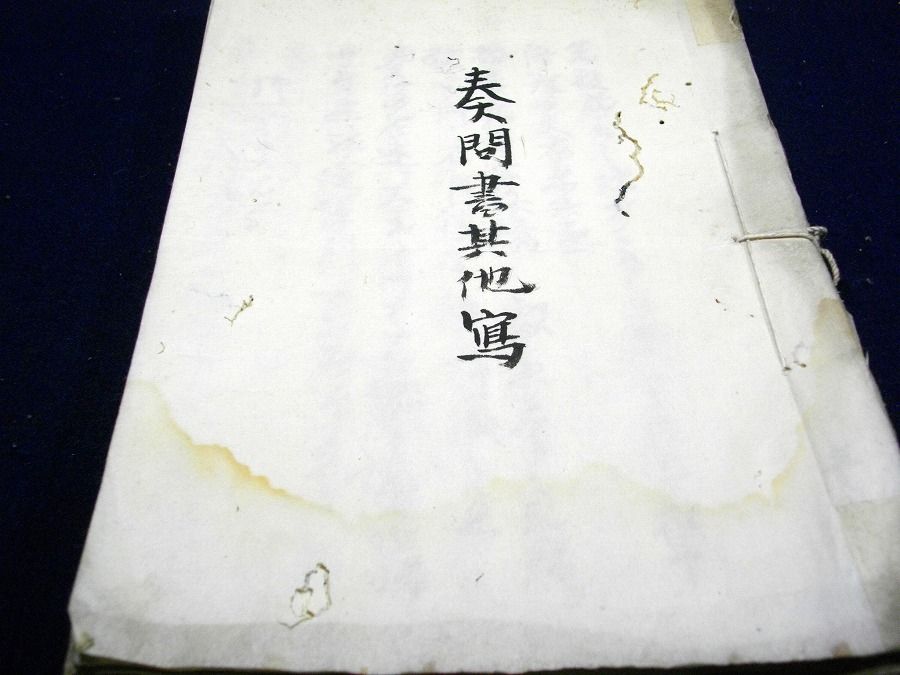 奏問書其他寫